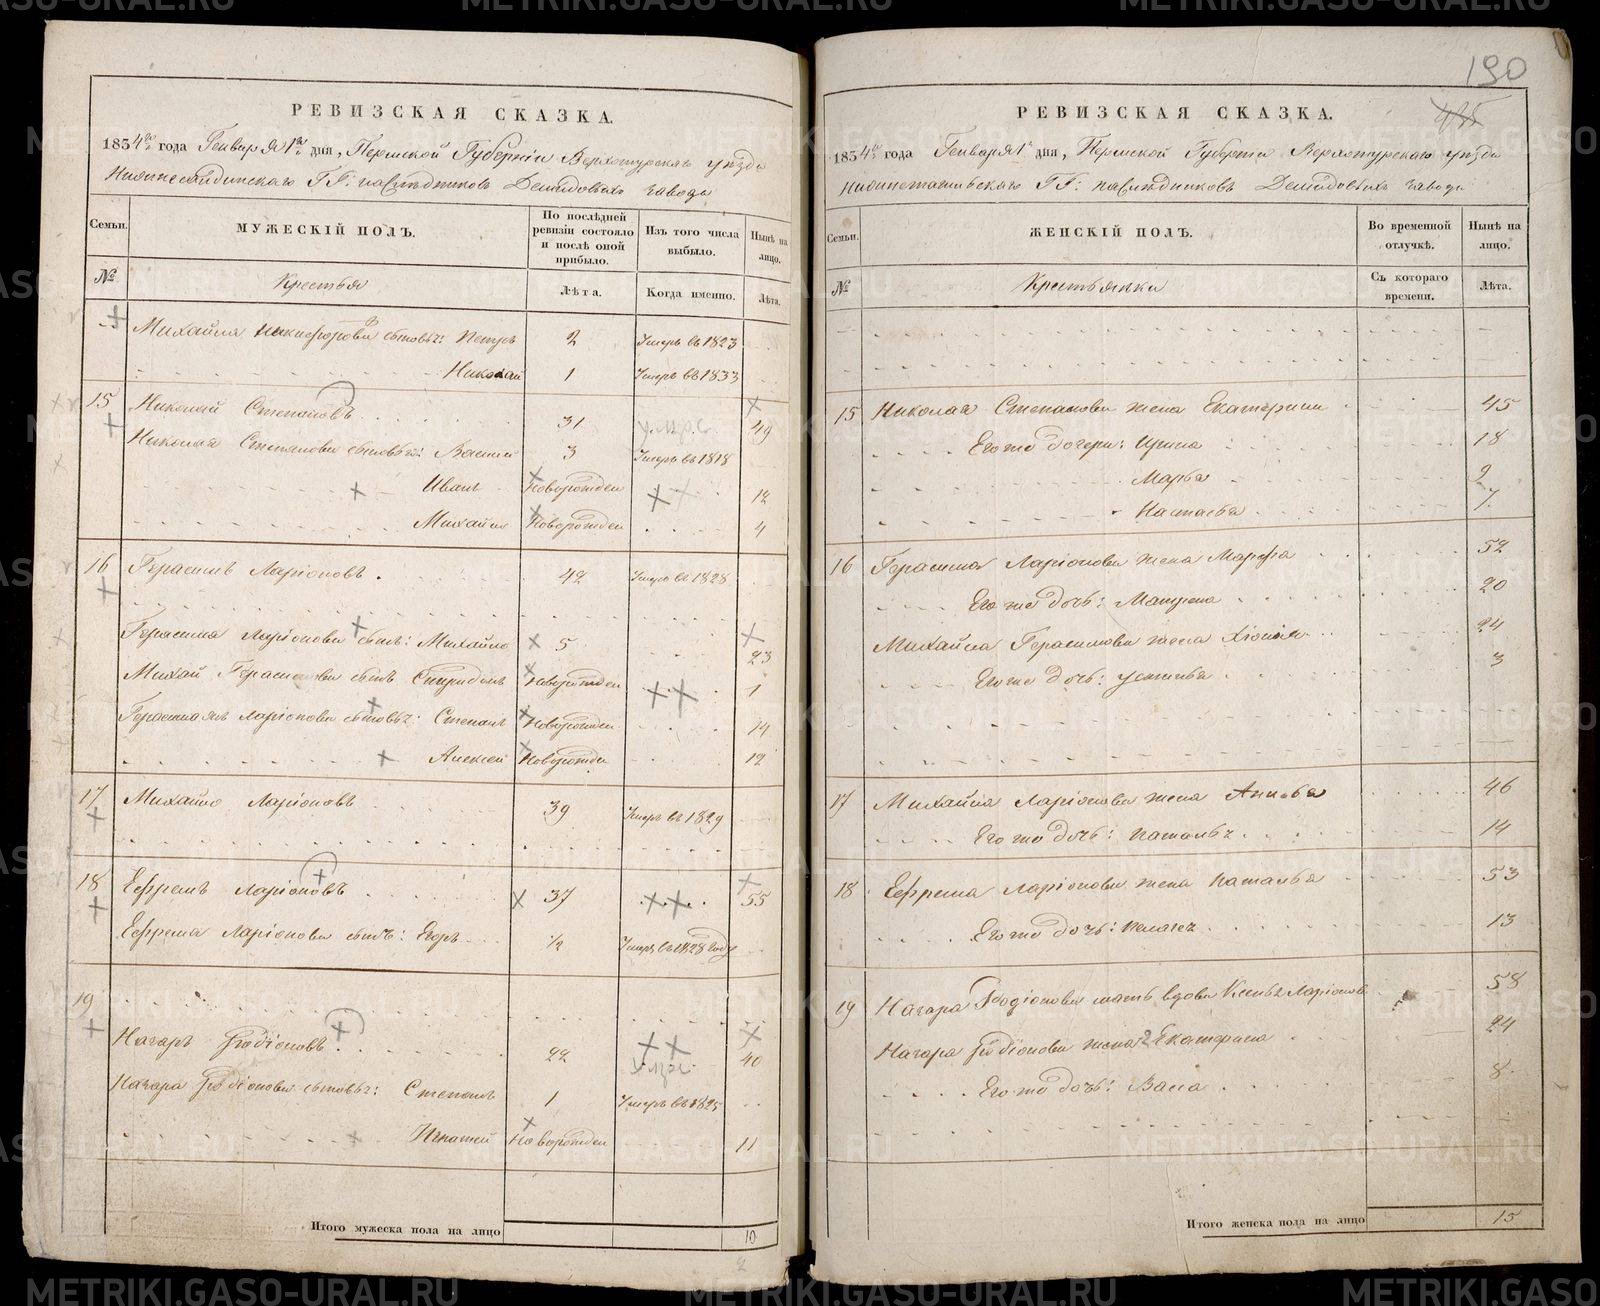 РЕВИЗСКАЯ СКАЗКА.
1834го года Генваря 1го дня, Пермской Губернии Верхотурскаго уезда
ГГ: наследниковъ Демидовыхъ завода
Семьи.
МУЖЕСКІЙ ПОЛЪ.
По послѣдней ревизіи состояло и послѣ оной прибыло.
Изъ того числа выбыло.
Нынѣ на лицо.
№
Крестьян
Лѣта.
Когда именно.
Лѣта.
Михайла Никифорова сыновья: Петръ 2 Умеръ въ 1823
Николай 1 Умеръ въ 1833
15 Николай Степановъ 31 49
Николая Степанова сыновья: Василий 3 Умеръ въ 1818
Иванъ Новорожден 12
Михайло Новорожден 4
16 Герасимъ Ларіоновъ 42 Умеръ въ 1828
Герасима Ларіонова сынъ: Михайло 5 23
Михай Герасимова сынъ Спиридонъ Новорожден 1
Ларіонова сыновья: Степанъ Новорожден 14
Алексей Новорожден 12
17 Михайло Ларіоновъ 39 Умеръ въ 1829
18 Ефремъ Ларіоновъ 37 55
Ефрема Ларіонова сынъ: Егоръ 1/2 Умеръ въ 1828 году
19
Назаръ Родіоновъ 22 40
Назара Родіонова сыновья: Степанъ 1 Умеръ въ 1825
Игнатей Новорожден 11
Итого мужеска пола на лицо 10
2
190
РЕВИЗСКАЯ СКАЗКА.
1834го года Генваря 1го дня, Пермской Губернии Верхотурскаго уезда
Нижнетагильскаго ГГ: наследниковъ Демидовыхъ завода
Семьи.
ЖЕНСКІЙ ПОЛЪ.
Во временной отлучкѣ.
Нынѣ на лицо.
№
Крестьянки
Съ котораго времени.
Лѣта.
15 Николая Степанова жена Екатерина 45
Его же дочери: Ирина 18
Марья 9
Настасья 7
16 Герасима Ларіонова жена Марфа 52
Его же дочь: Матрена 20
Михайла Герасимова жена Хіонія 24
Его же дочь: Устинья 3
17 Михайла Ларіонова жена Анисья 46
Его же дочь: Наталья 14
18 Ефрема Ларіонова жена Наталья 53
Его же дочь: Пелагея 13
19 Назара Родіонова мать вдова Ларіонов 58
Назара Родіонова жена 2 Екатерина 24
Его же дочь: Васса 8
Итого женска пола на лицо 15
METRIKI.GASO-URAL.RU